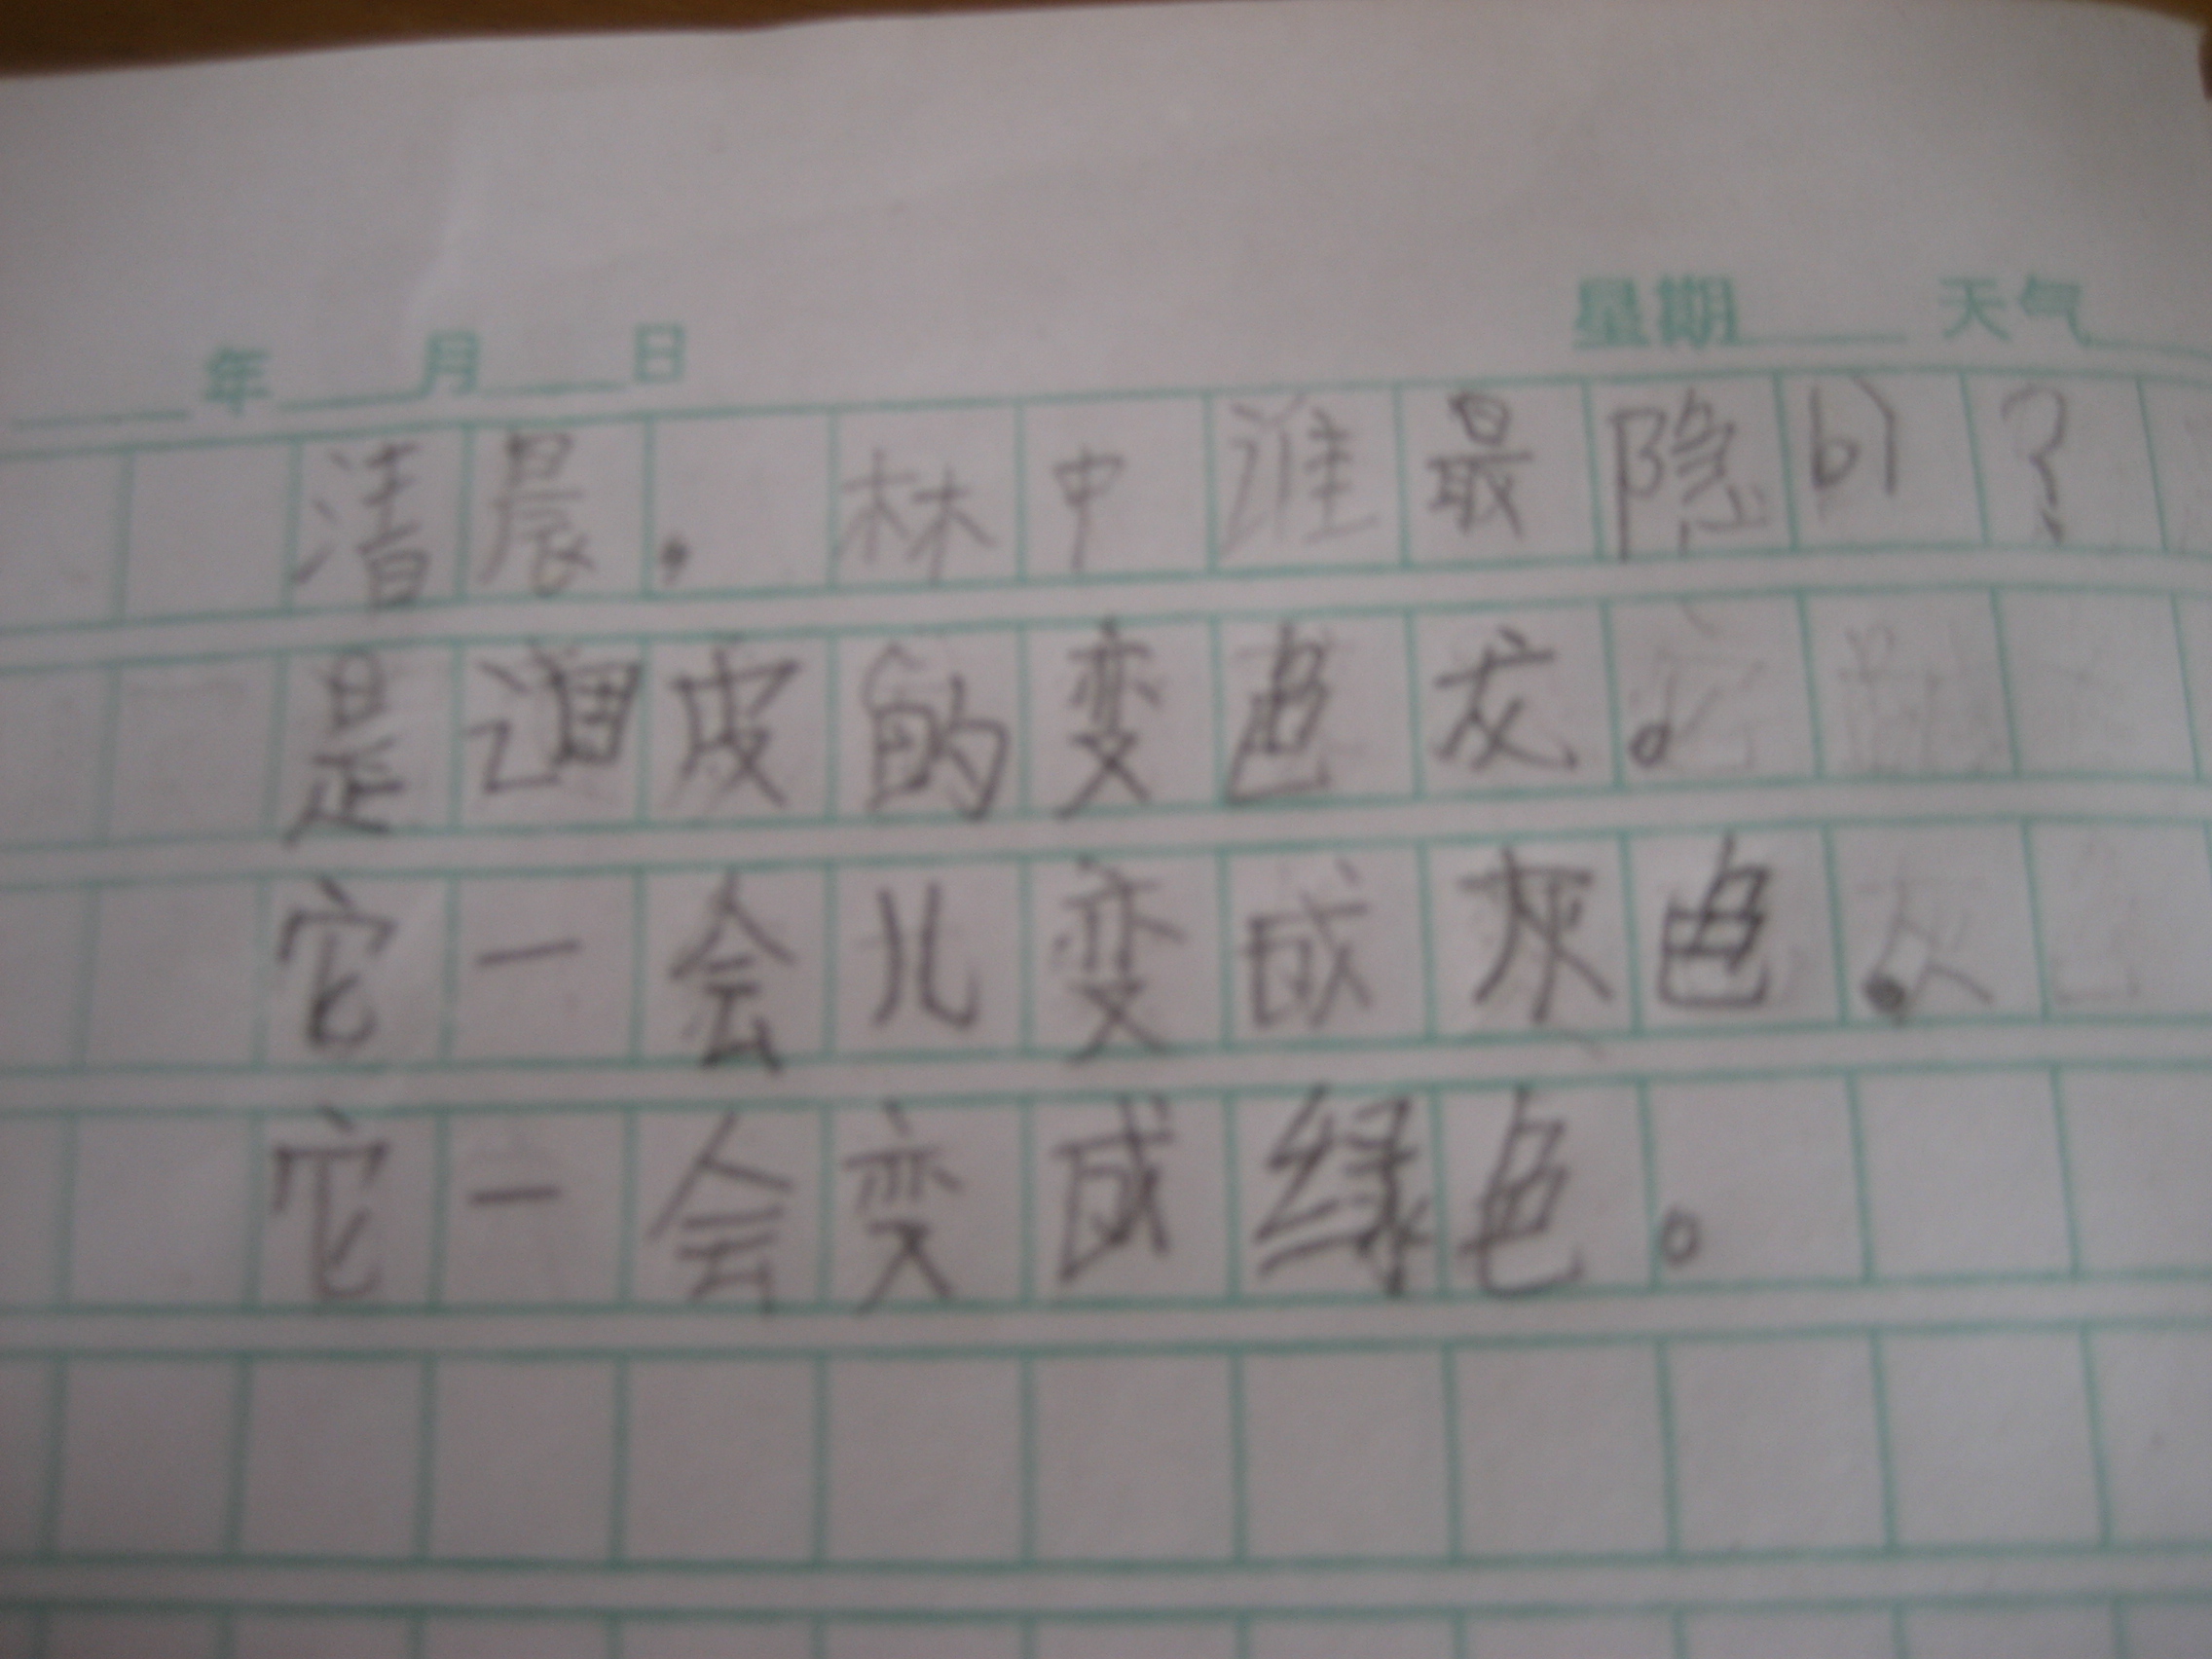 年 月 日 星期 天气
清晨，林中谁最隐bì？
是调皮的变色龙。
它一会儿变成灰色，
它一会变成绿色。